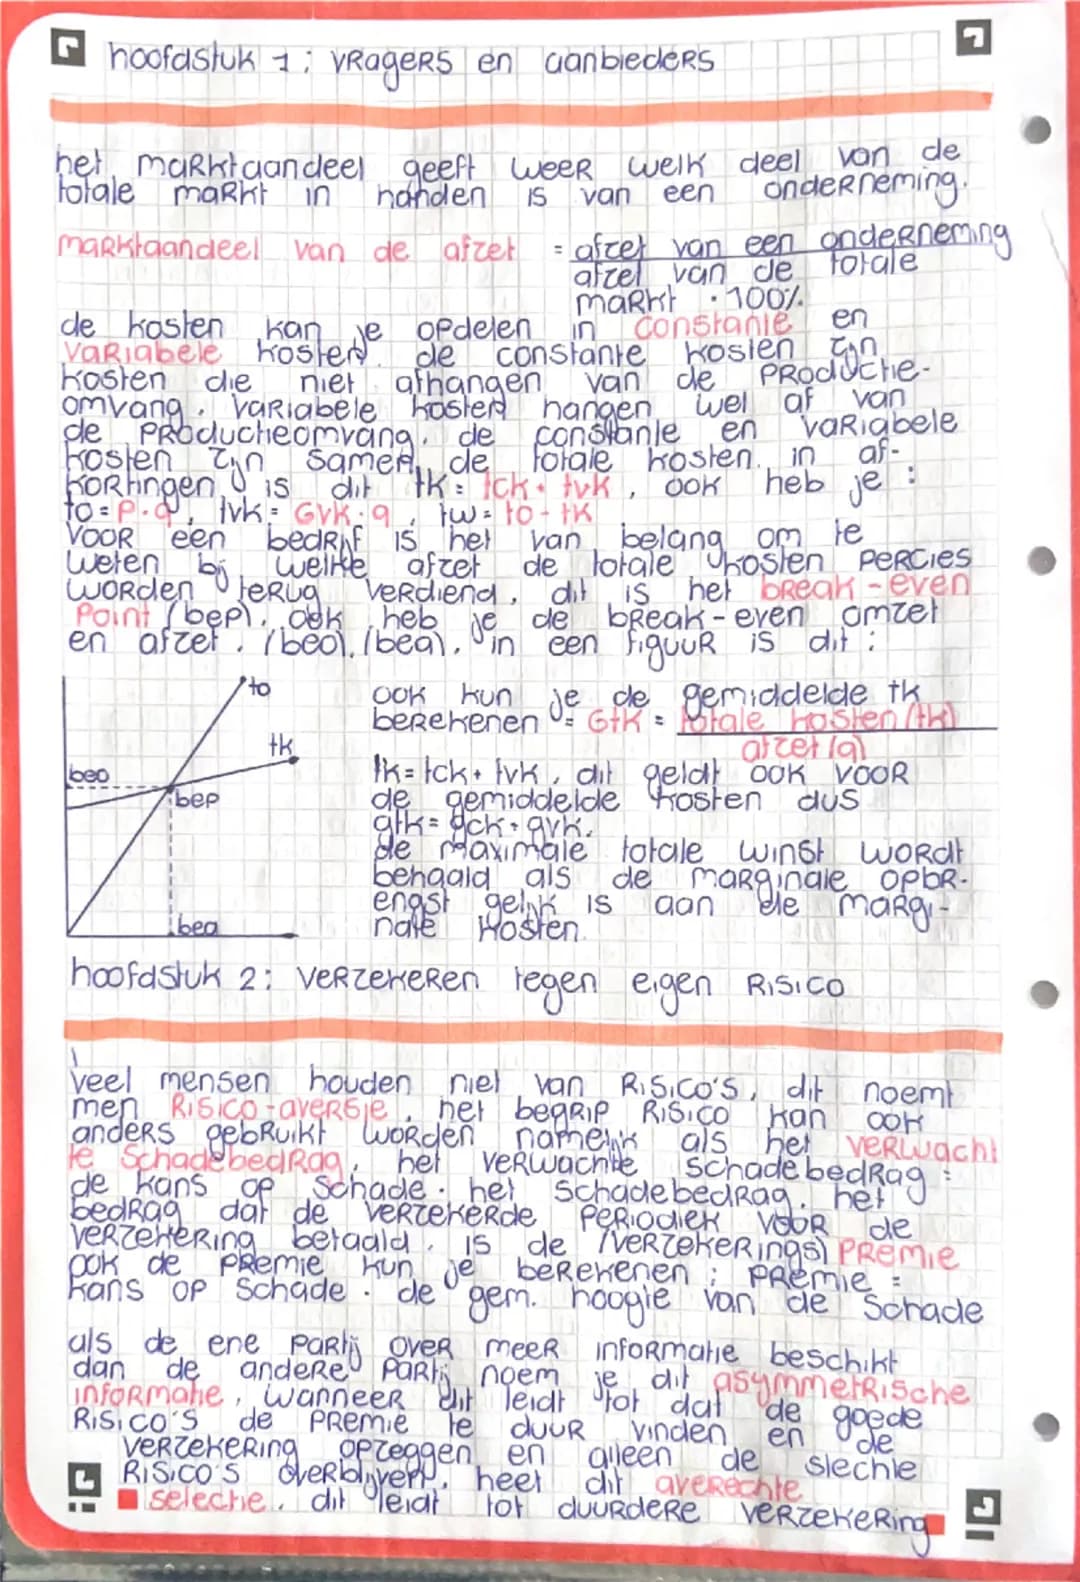 hoofdstuk 1: vragers en aanbieders
het marktaandeel geeft weer welk deel van de
totale markt in handen is van een onderneming.
marktaandeel van de afzet = afzet van een onderneming
afzet van de totale
markt · 100%
de kosten kan je opdelen in constante en
variabele kosten. de constante kosten zijn
kosten die niet afhangen van de productie-
omvang. variabele kosten hangen wel af van
de productieomvang. de constante en variabele
kosten zijn samen de totale kosten. in af-
kortingen is dit tk = tck + tvk, ook heb je :
to = p·q, tvk = Gvk·q, tw = to - tk
voor een bedrijf is het van belang om te
weten bij welke afzet de totale kosten percies
worden terug verdiend, dit is het break-even
point (bep). ook heb je de break-even omzet
en afzet. (beo). (bea). in een figuur is dit :
to
tk
beo
bep
bea
ook kun je de gemiddelde tk
berekenen = Gtk = totale kosten (tk)
afzet (q)
tk = tck + tvk, dit geldt ook voor
de gemiddelde kosten dus
gtk = gck + gvk.
de maximale totale winst wordt
behaald als de marginale opbr-
engst gelijk is aan de margi-
nale kosten.
hoofdstuk 2: verzekeren tegen eigen risico
veel mensen houden niet van risico's, dit noemt
men risico-aversie. het begrip risico kan ook
anders gebruikt worden namelijk als het verwacht
te schadebedrag. het verwachte schadebedrag =
de kans op schade · het schadebedrag. het
bedrag dat de verzekerde periodiek voor de
verzekering betaald, is de (verzekerings) premie
ook de premie kun je berekenen : premie =
kans op schade · de gem. hoogte van de schade
als de ene partij over meer informatie beschikt
dan de andere partij noem je dit asymmetrische
informatie, wanneer dit leidt tot dat de goede
risico's de premie te duur vinden en de
verzekering opzeggen en alleen de slechte
risico's overblijven, heet dit averechte
selectie. dit leidt tot duurdere verzekering